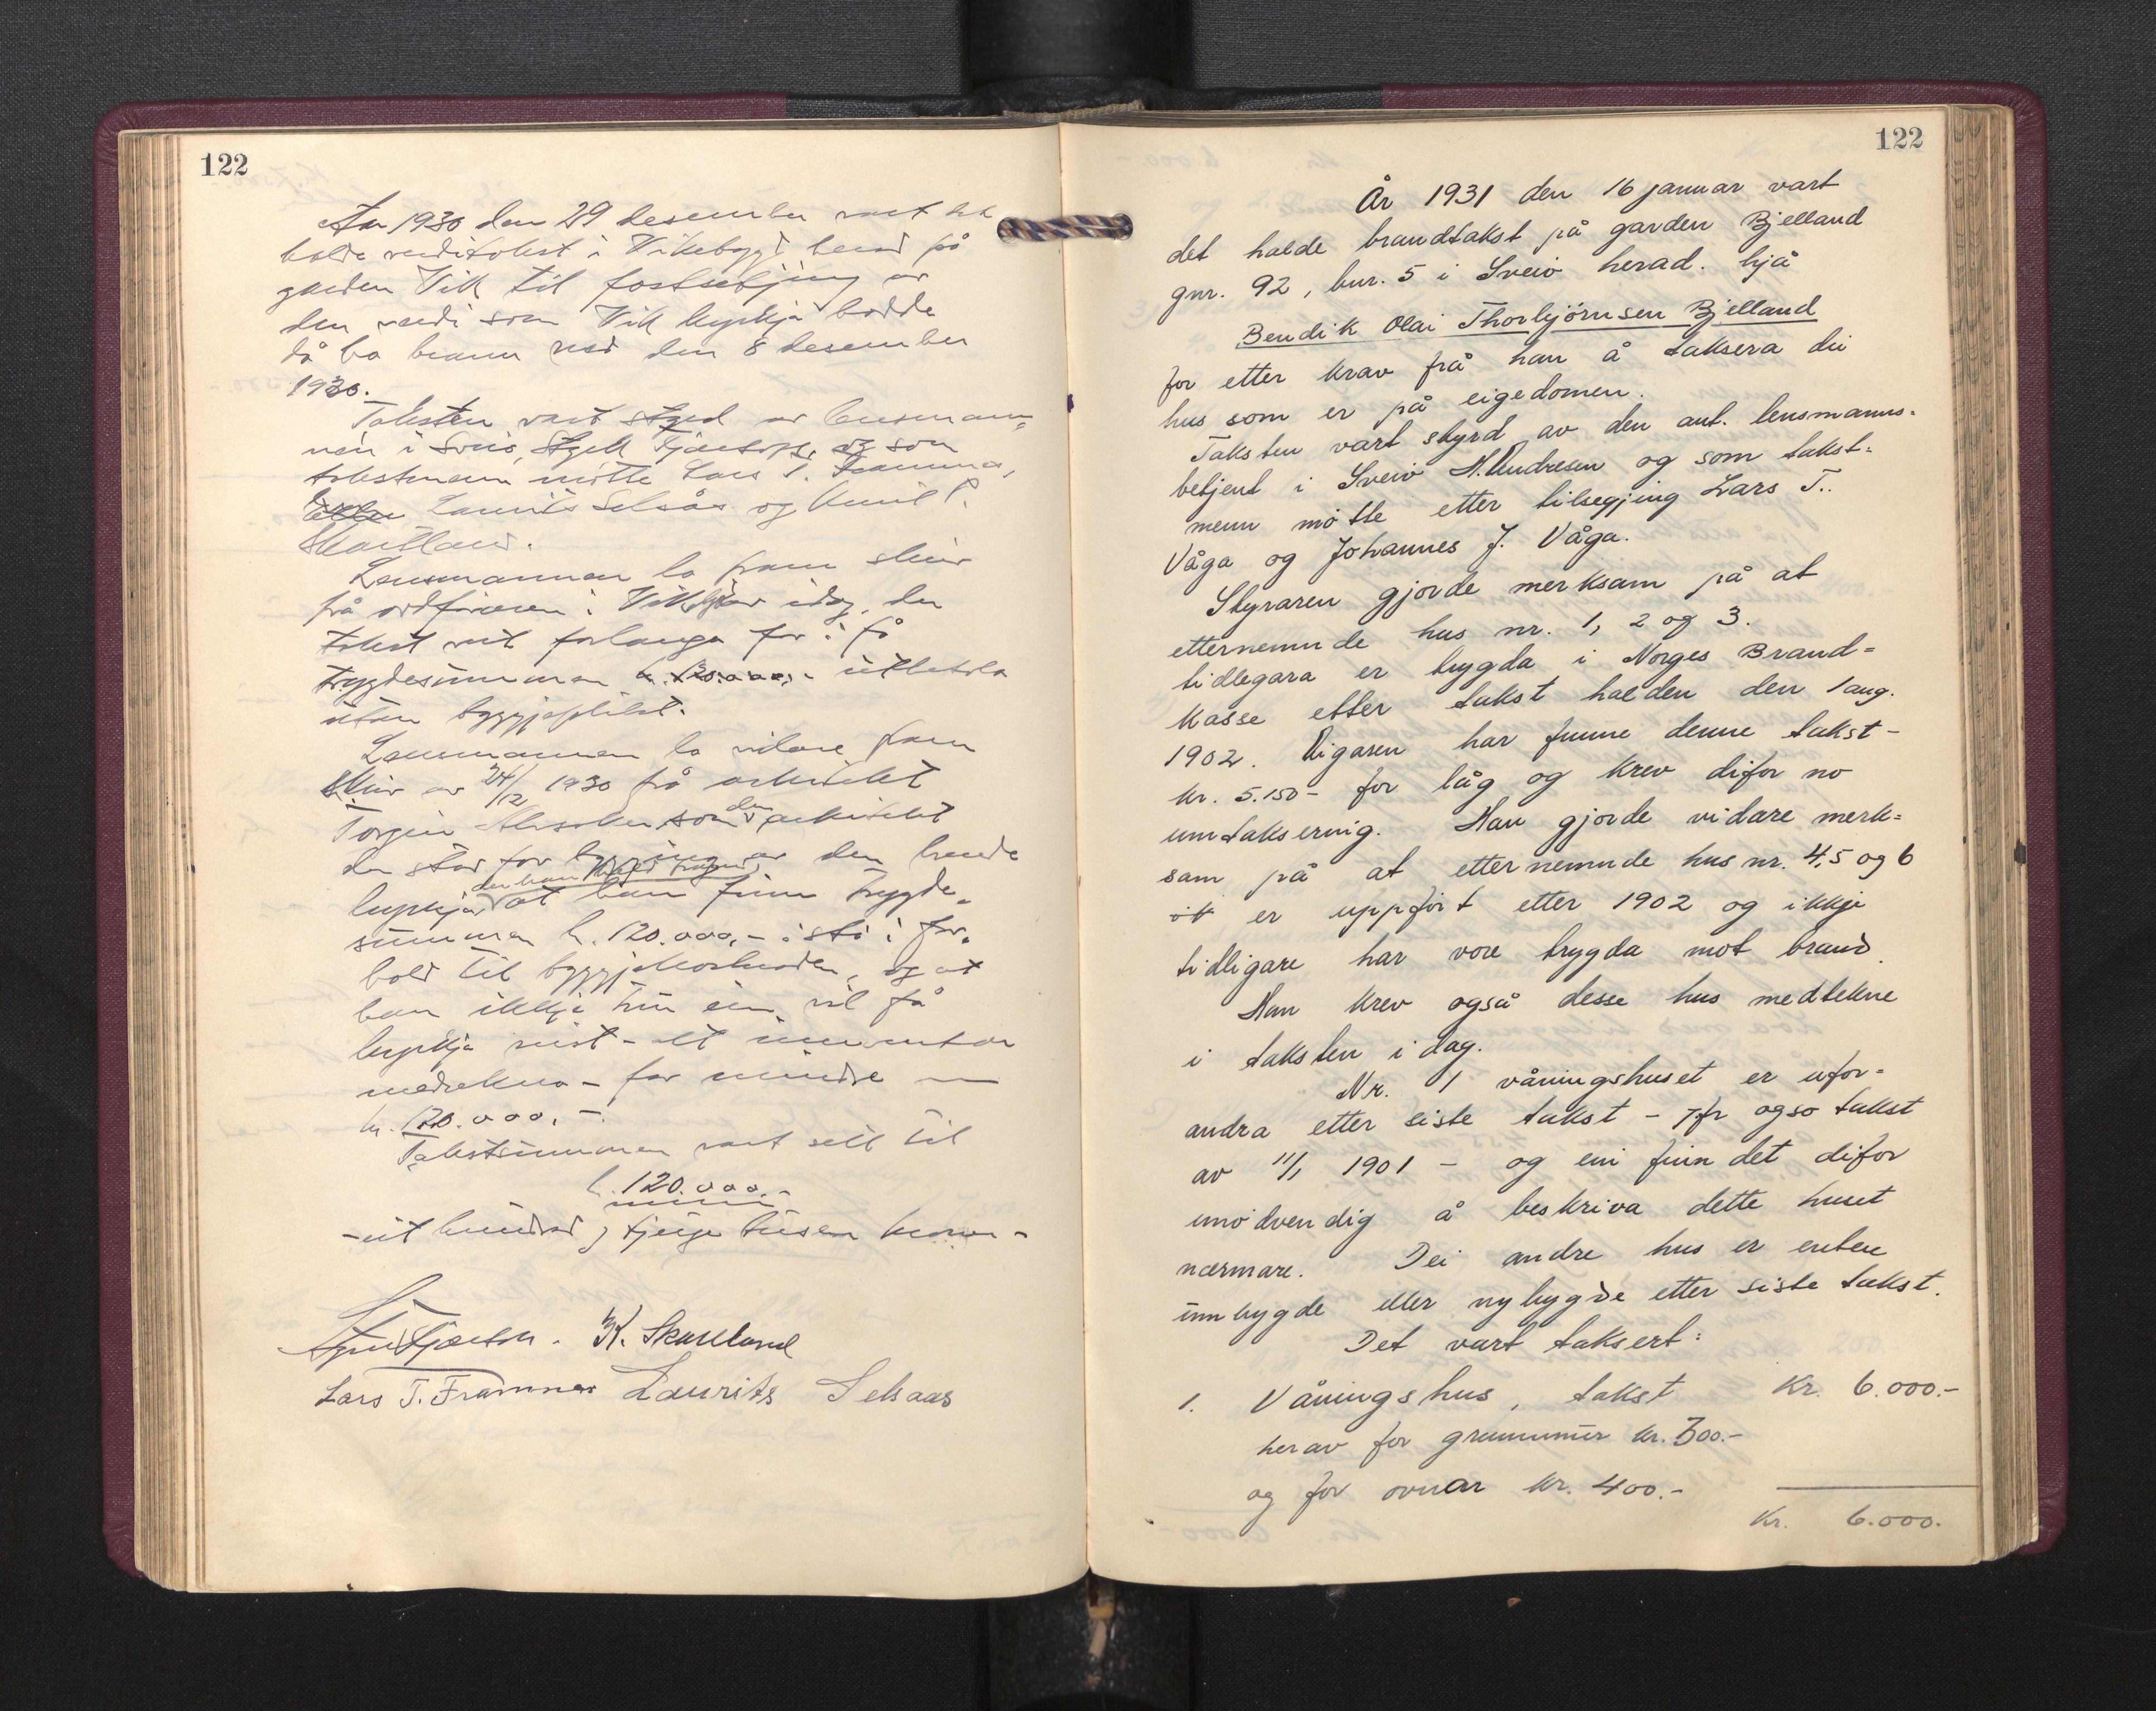 122
År 1930 den 29 desember vart det
halde verditakst i Vikebygd herad på
garden Vik til fastsetjing av
den verdi som Vik kyrkja hadde
då ho brann ned den 8 desember
1930.
Taksten vart styrd av lensmann-
nen i Sveio, og som
takstmenn møtte Lars T. Framnes,
Laurits Selsås og Knut
Lensmannen la fram skriv
frå ordføraren i idag, der
takst vert forlanga for å få
trygdesummen kr. 120.000,- utbetala
utan byggjeplikt.
Lensmannen la vidare fram
skriv av 24/12 1930 frå arkitekt
Torgeir Alvsaker, som den arkitekt
der stod for bygging av den brende
kyrkja, at han finn trygde-
summen kr. 120.000,- i stå i for-
hold til byggjekostnaden, og at
han ikkje trur ein vil få
kyrkja reist - alt inventar
medrekna - for mindre enn
kr. 120.000,-.
Takstsummen vart sett til
kr. 120.000.-
- eit hundrad og tjuge tusen kroner -
K. Skartland
Lars T. Framnes Laurits Selsaas
122
År 1931 den 16 januar vart
det halde brandtakst på garden Bjelland
gnr. 92, bnr. 5 i Sveio herad. hjå
Bendik Olai Thorbjørnsen Bjelland
for etter krav frå han å taksera dei
hus som er på eigedomen.
Taksten vart styrd av den aut. lensmanns-
betjent i Sveio N. Andresen og som takst-
menn møtte etter tilsegjing Lars T.
Våga og Johannes J. Våga.
Styraren gjorde merksam på at
etternemnde hus nr. 1, 2 og 3.
tidlegara er trygda i Norges Brand-
kasse etter takst halden den 1 aug.
1902. Eigaren har funne denne takst-
kr. 5.150- for låg og krev difor no
umtaksering. Han gjorde vidare merk-
sam på at etternemnde hus nr. 4, 5 og 6
er uppført etter 1902 og ikkje
tidligare har vore trygda mot brand.
Han krev også desse hus medtekne
i taksten i dag.
Nr. 1 våningshuset er ufor-
andra etter siste takst - jfr også takst
av 11/1 1901 - og ein finn det difor
unødvendig å beskriva dette huset
nærmare. Dei andre hus er enten
umbygde eller nybygde etter siste takst.
Det vart taksert:
1. Våningshus, takst Kr. 6.000.-
herav for grunnmur kr. 300.-
og for ovnar kr. 400.-
Kr. 6.000.